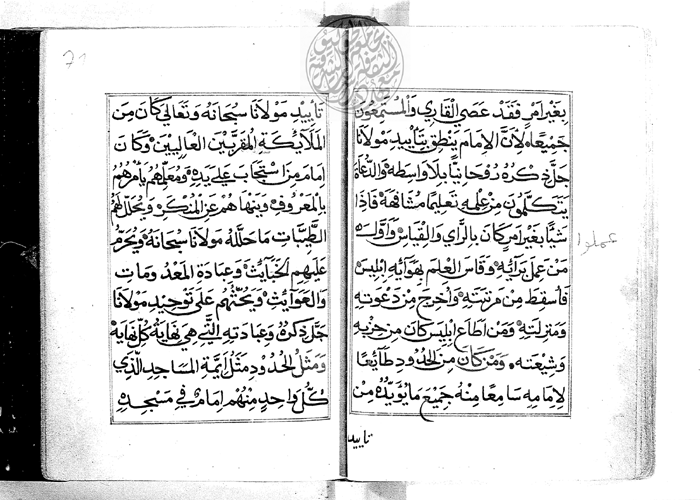 بغير امر فقد عصي القاري والمستمعون
جميعاه لان الامام ينطق بتأييد مولانا
جل ذكره روحانيا بلا واسطه والدعاة
يتكلمون من علمه تعليما مشافهة فاذا
شيا بغير امر كان بالراي والقياس واول
عملوا
من عمل برائه وقاس العلم بهوايه ابليس
فاسقط من مرتبته واخرج من دعوته
ومنزلته ومن اطاع ابليس كان من حزبه
وشيعته ومن كان من الحدود طائعا
لامامه سامعا منه جميع ما يويده من
تاييد
71
تاييد مولانا سبحانه وتعالي كان من
الملايكة المقربين العاليين وكان
امام من استجاب علي يده ومعلمهم يأمرهم
بالمعروف وينهاهم عن المنكر ويحلل لهم
الطيبات ما حلله مولانا سبحانه ويحرم
عليهم الخبايث وعبادة المعدومات
والهوايث ويحثهم علي توحيد مولانا
جل ذكره وعبادته التي هي نهاية كل نهاية
ومثل الحدود مثل ايمة المساجد الذي
كل واحد منهم امام في مسجده